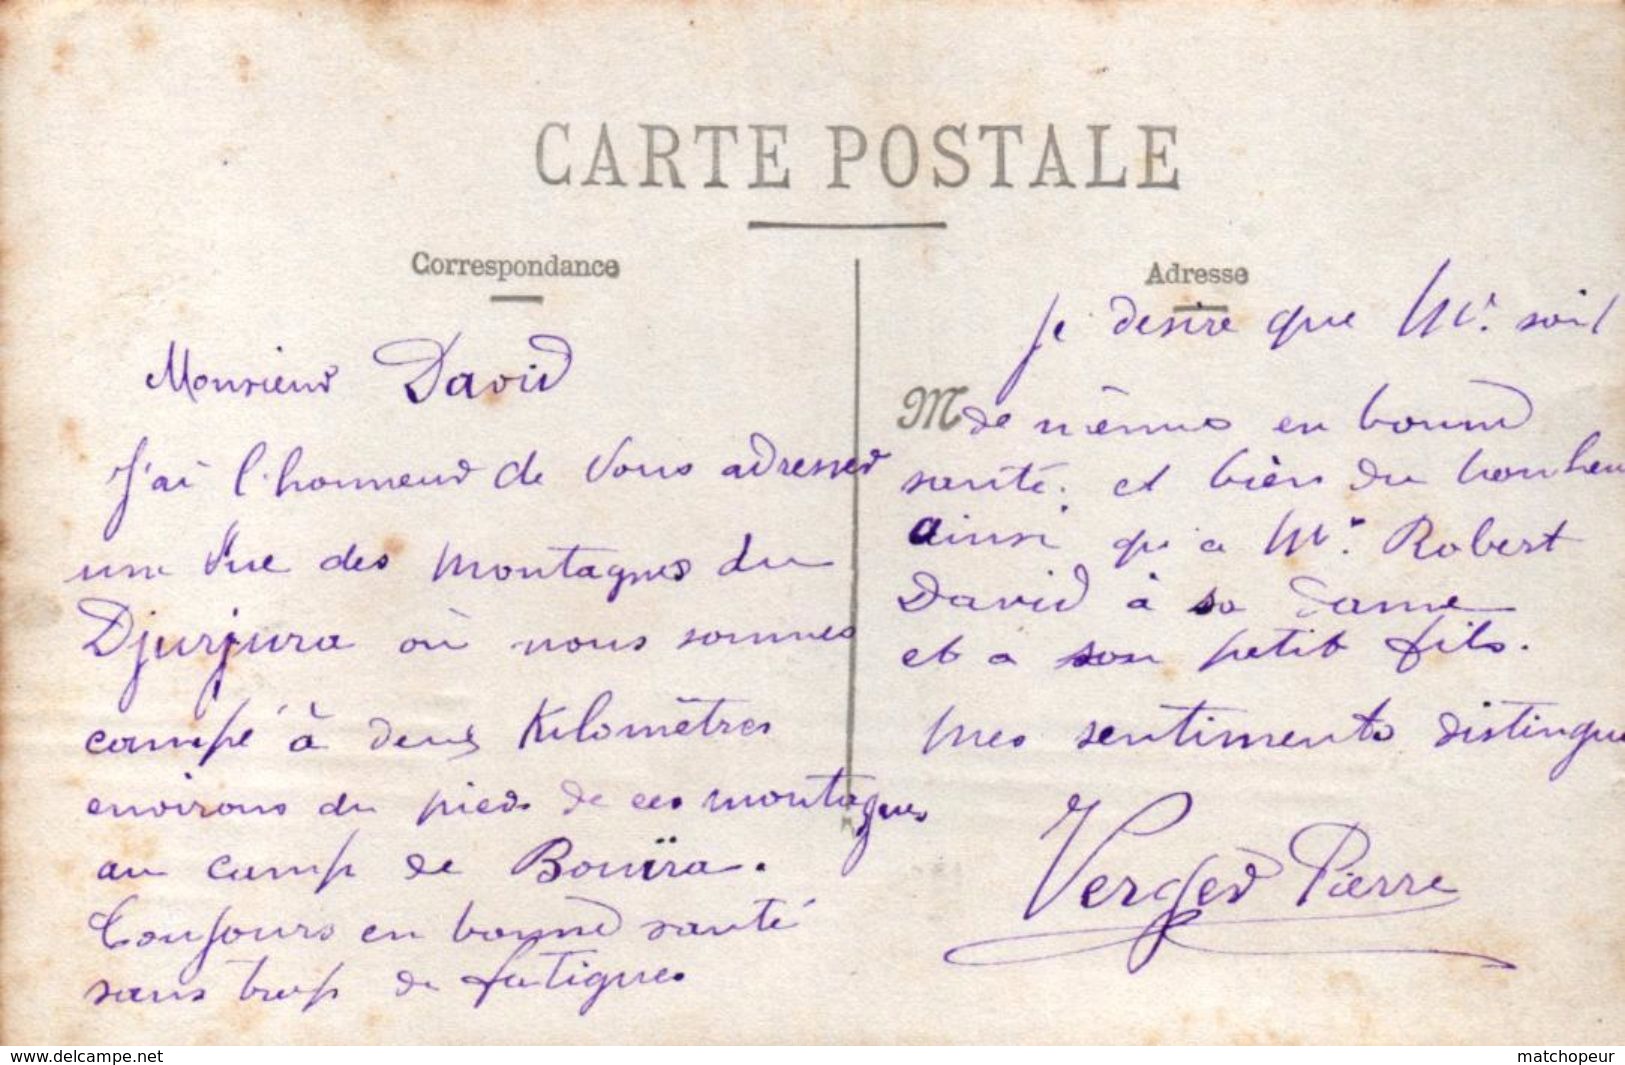 CARTE POSTALE
Correspondance
Monsieur David
J'ai l'honneur de vous adresser
une vue des montagnes du
Djurjura où nous sommes
campé à deux Kilomètres
environs du pieds de ces montagnes
au camp de Bouïra.
Toujours en bonne santé
sans trop de fatigues
Adresse
je desire que Mr. soit
M de mêmes en bonne
santé. et bien du bonheu
ainsi qu'a Mr. Robert
David à sa dame
et a son petit fils.
Mes sentiments distingu
Verger Pierre
www.delcampe.net
matchopeur